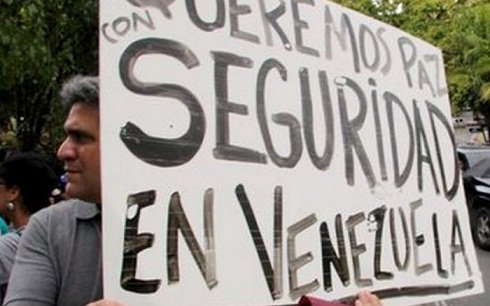 QUEREMOS PAZ
CON
SEGURIDAD
EN VENEZUELA